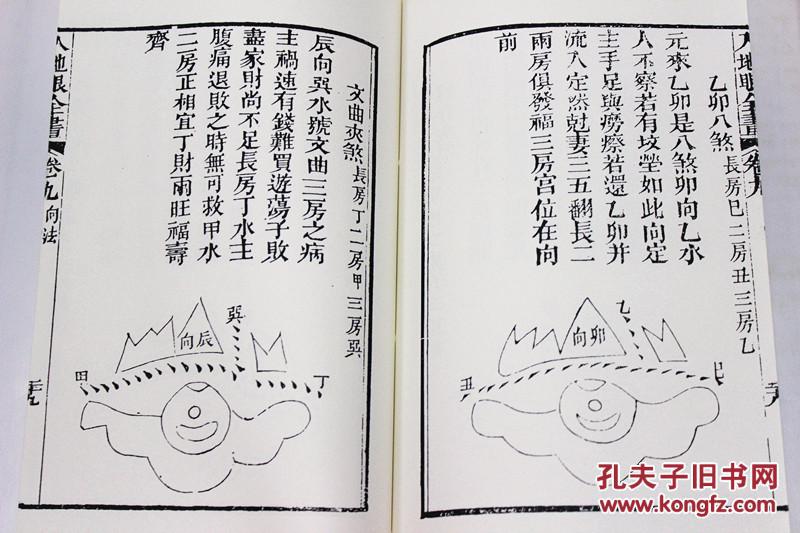 人地眼全書 卷九
乙卯八煞 長房巳二房丑三房乙
元來乙卯是八煞卯向乙水
人不察若有坟塋如此向定
主手足與癆瘵若還乙卯并
流入定然尅妻三五翻長二
兩房俱發福三房宫位在向
前
乙
卯向
丑
巳
人地眼全書 卷九 向法
文曲夾煞 長房丁二房甲三房巽
辰向巽水號文曲三房之病
主禍速有錢難買遊蕩子敗
盡家財尚不足長房丁水主
腹痛退敗之時無可救甲水
二房正相宜丁財兩旺福壽
齊
巽
辰向
田
丁
孔夫子旧书网
www.kongfz.com